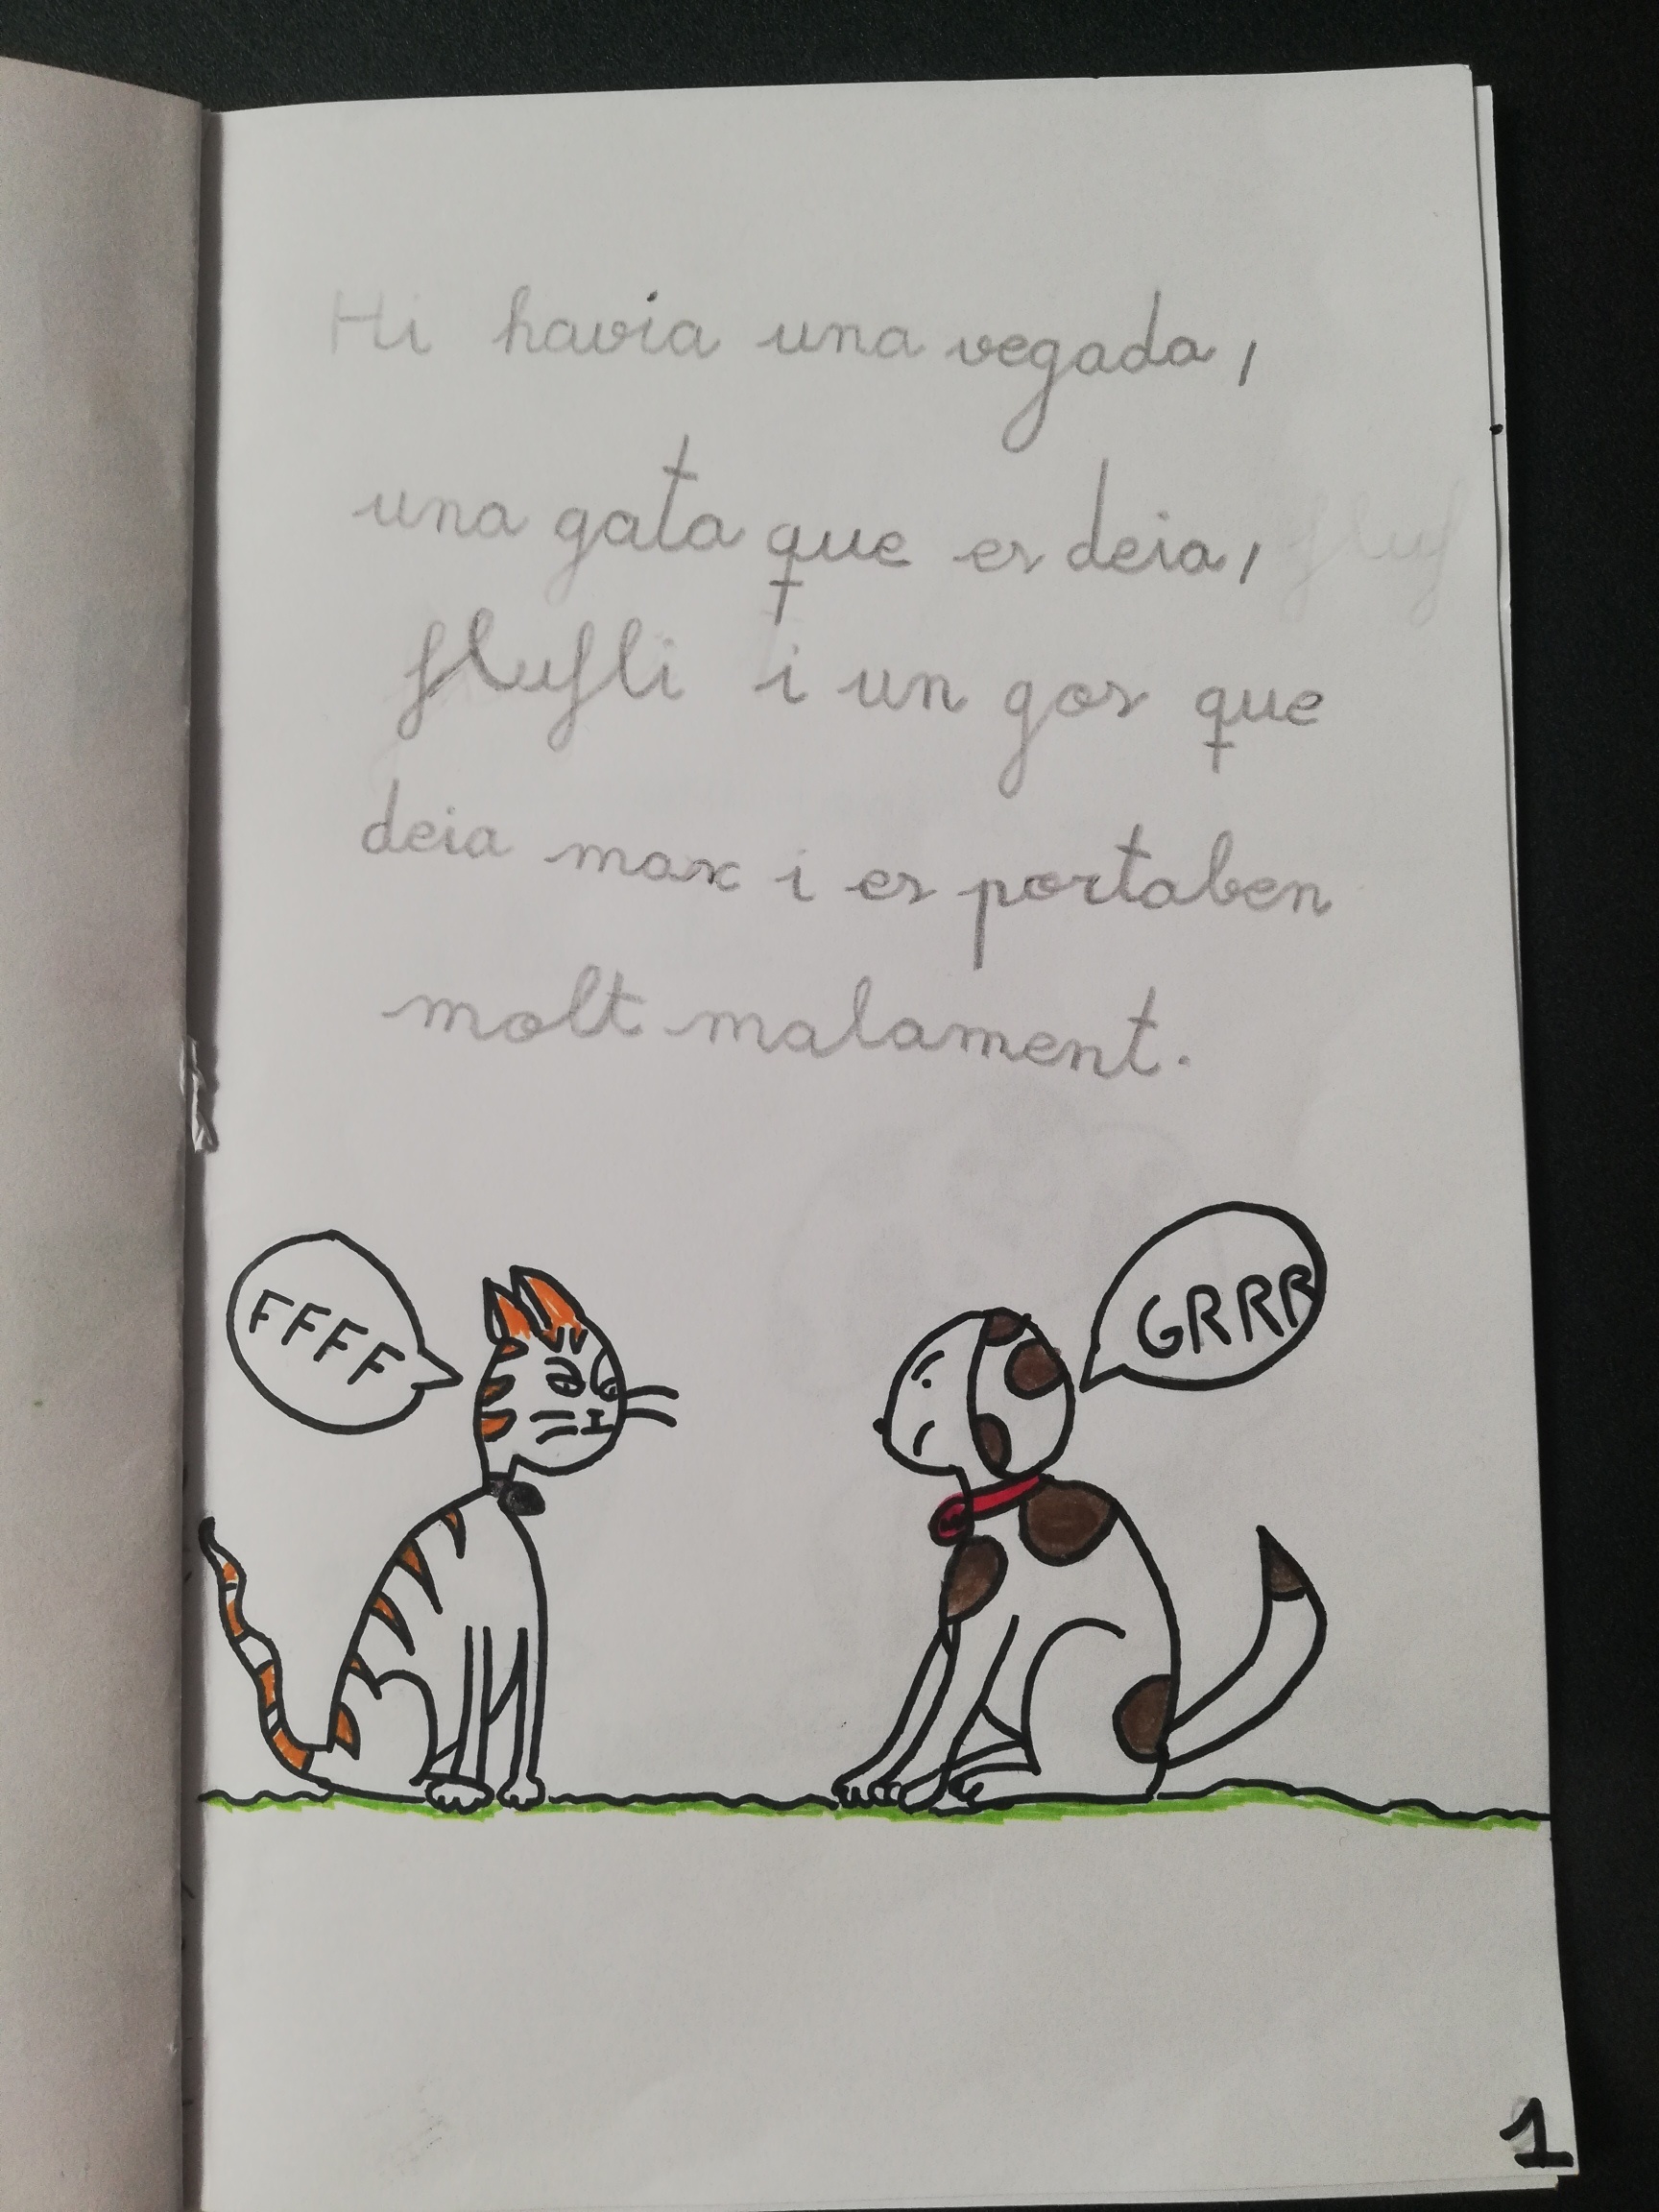 Hi havia una vegada,
una gata que es deia,
flufli i un gos que
deia max i es portaben
molt malament.
FFFF
GRRR
1